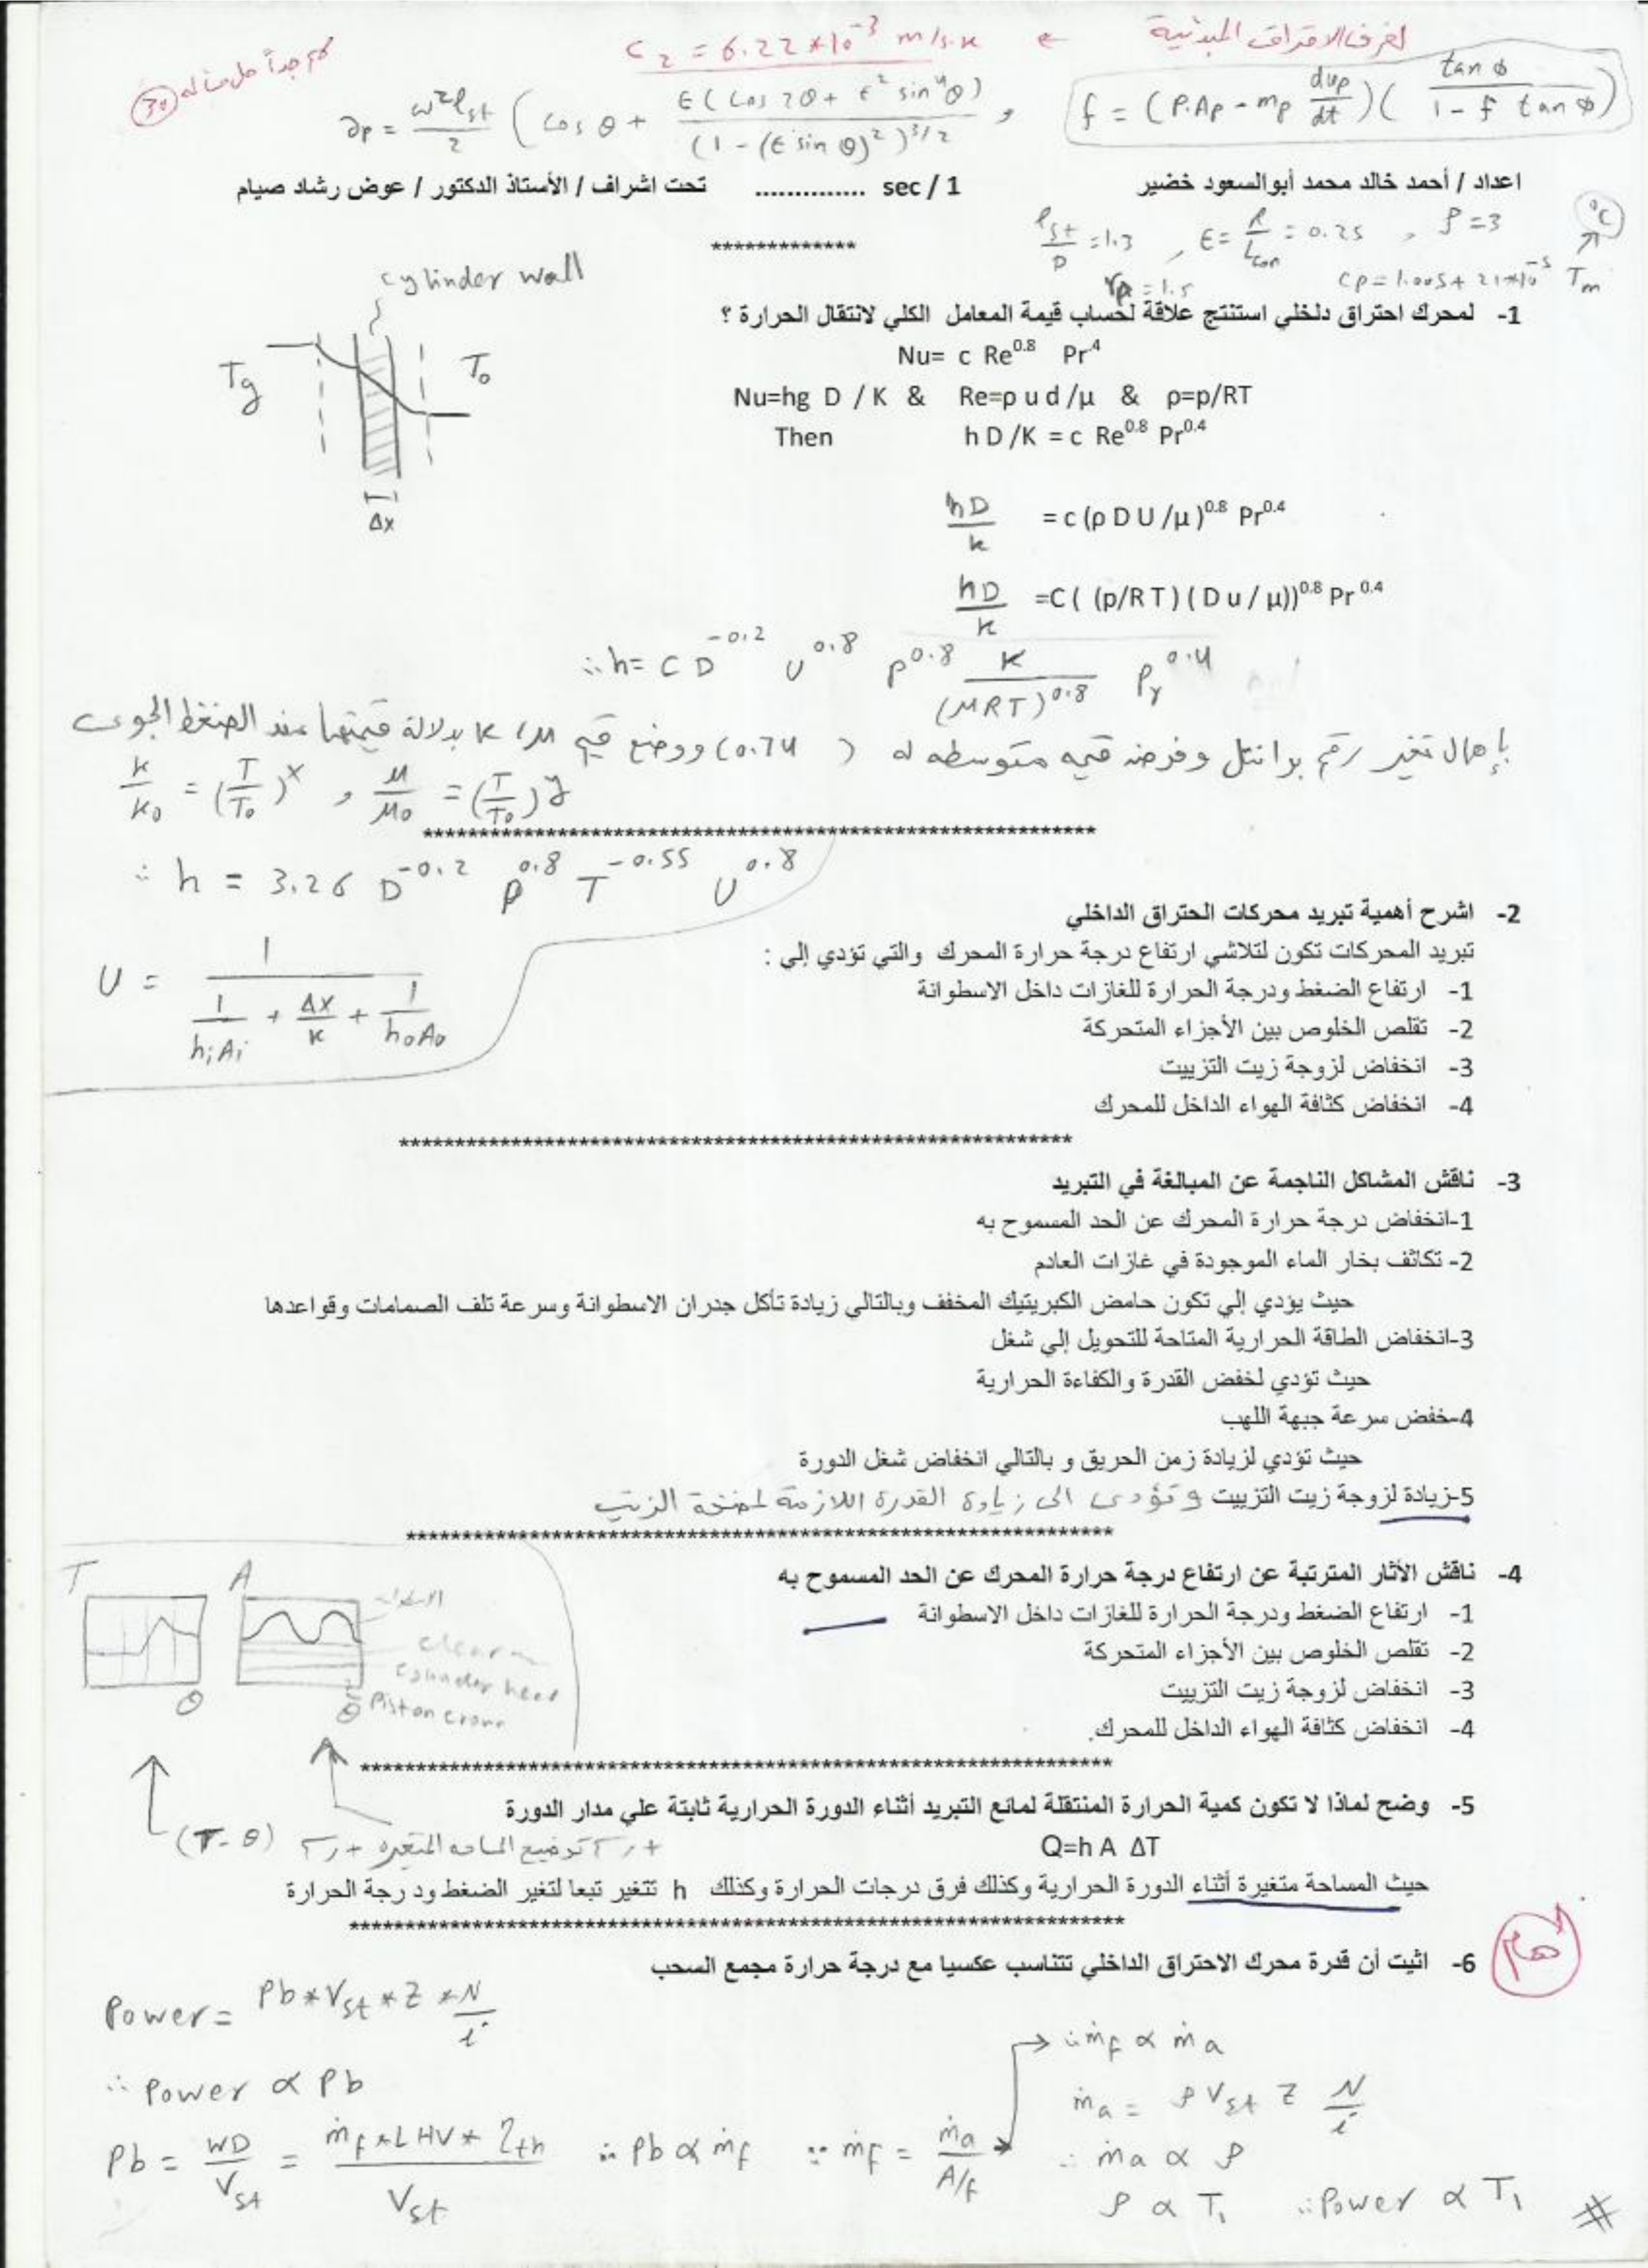 لغرف الاحتراق المبدئية ← C2 = 6.22*10^-3 m/s.k
هام جداً حل مسأله (30)
ap = ω²Lst/2 ( cos θ + ε(cos 2θ + ε² sin⁴θ) / (1 - (ε sin θ)²)^3/2 , f = (P.Ap - mp dup/dt)( tan ϕ / 1 - f tan ϕ )
اعداد / أحمد خالد محمد أبوالسعود خضير sec / 1 .............. تحت اشراف / الأستاذ الدكتور / عوض رشاد صيام
Lst/D = 1.3 , ε = R/Lcon = 0.25 , ρ = 3 °C
*************
rp = 1.5 cp = 1.005 + 21*10^-5 Tm
cylinder wall
Tg To
Δx
1- لمحرك احتراق دلخلي استنتج علاقة لحساب قيمة المعامل الكلي لانتقال الحرارة ؟
Nu= c Re^0.8 Pr^.4
Nu=hg D / K & Re=ρ u d /μ & ρ=p/RT
Then h D /K = c Re^0.8 Pr^0.4
hD/k = c (ρ D U /μ )^0.8 Pr^0.4
hD/k =C ( (p/R T) ( D u / μ))^0.8 Pr^0.4
∴ h = C D^-0.2 U^0.8 P^0.8 K/(MRT)^0.8 Pr^0.4
بإهمال تغير رقم برانتل وفرض قيمه متوسطه له ( 0.74) ووضع قيم M, K بدلالة قيمتها عند الضغط الجوى
k/k0 = (T/T0)^x , M/M0 = (T/T0)^y
************************************************************
∴ h = 3.26 D^-0.2 P^0.8 T^-0.55 U^0.8
U = 1 / ( 1/hiAi + Δx/k + 1/hoAo )
2- اشرح أهمية تبريد محركات الحتراق الداخلي
تبريد المحركات تكون لتلاشي ارتفاع درجة حرارة المحرك والتي تؤدي إلي :
1- ارتفاع الضغط ودرجة الحرارة للغازات داخل الاسطوانة
2- تقلص الخلوص بين الأجزاء المتحركة
3- انخفاض لزوجة زيت التزييت
4- انخفاض كثافة الهواء الداخل للمحرك
************************************************************
3- ناقش المشاكل الناجمة عن المبالغة في التبريد
1-انخفاض درجة حرارة المحرك عن الحد المسموح به
2- تكاثف بخار الماء الموجودة في غازات العادم
حيث يؤدي إلي تكون حامض الكبريتيك المخفف وبالتالي زيادة تأكل جدران الاسطوانة وسرعة تلف الصمامات وقواعدها
3-انخفاض الطاقة الحرارية المتاحة للتحويل إلي شغل
حيث تؤدي لخفض القدرة والكفاءة الحرارية
4-خفض سرعة جبهة اللهب
حيث تؤدي لزيادة زمن الحريق و بالتالي انخفاض شغل الدورة
5-زيادة لزوجة زيت التزييت و تؤدى الى زيادة القدرة اللازمة لمضخة الزيت
************************************************************
4- ناقش الأثار المترتبة عن ارتفاع درجة حرارة المحرك عن الحد المسموح به
1- ارتفاع الضغط ودرجة الحرارة للغازات داخل الاسطوانة
2- تقلص الخلوص بين الأجزاء المتحركة
3- انخفاض لزوجة زيت التزييت
4- انخفاض كثافة الهواء الداخل للمحرك.
T θ A θ
cylinder head
Piston crown
************************************************************
5- وضح لماذا لا تكون كمية الحرارة المنتقلة لمائع التبريد أثناء الدورة الحرارية ثابتة علي مدار الدورة
Q=h A ΔT
+ رسم توضيح المساحه المتغيره + رسم (T-θ)
حيث المساحة متغيرة أثناء الدورة الحرارية وكذلك فرق درجات الحرارة وكذلك h تتغير تبعا لتغير الضغط ودرجة الحرارة
************************************************************
هام
6- اثبت أن قدرة محرك الاحتراق الداخلي تتناسب عكسيا مع درجة حرارة مجمع السحب
Power = Pb*Vst*Z*N/i
∴ Power ∝ Pb
Pb = WD/Vst = ṁf*LHV*ηth/Vst ∴ Pb ∝ ṁf ∵ ṁf = ṁa/A/f
∴ ṁf ∝ ṁa
ṁa = ρ Vst Z N/i
∴ ṁa ∝ ρ
ρ ∝ T1 ∴ Power ∝ T1 #